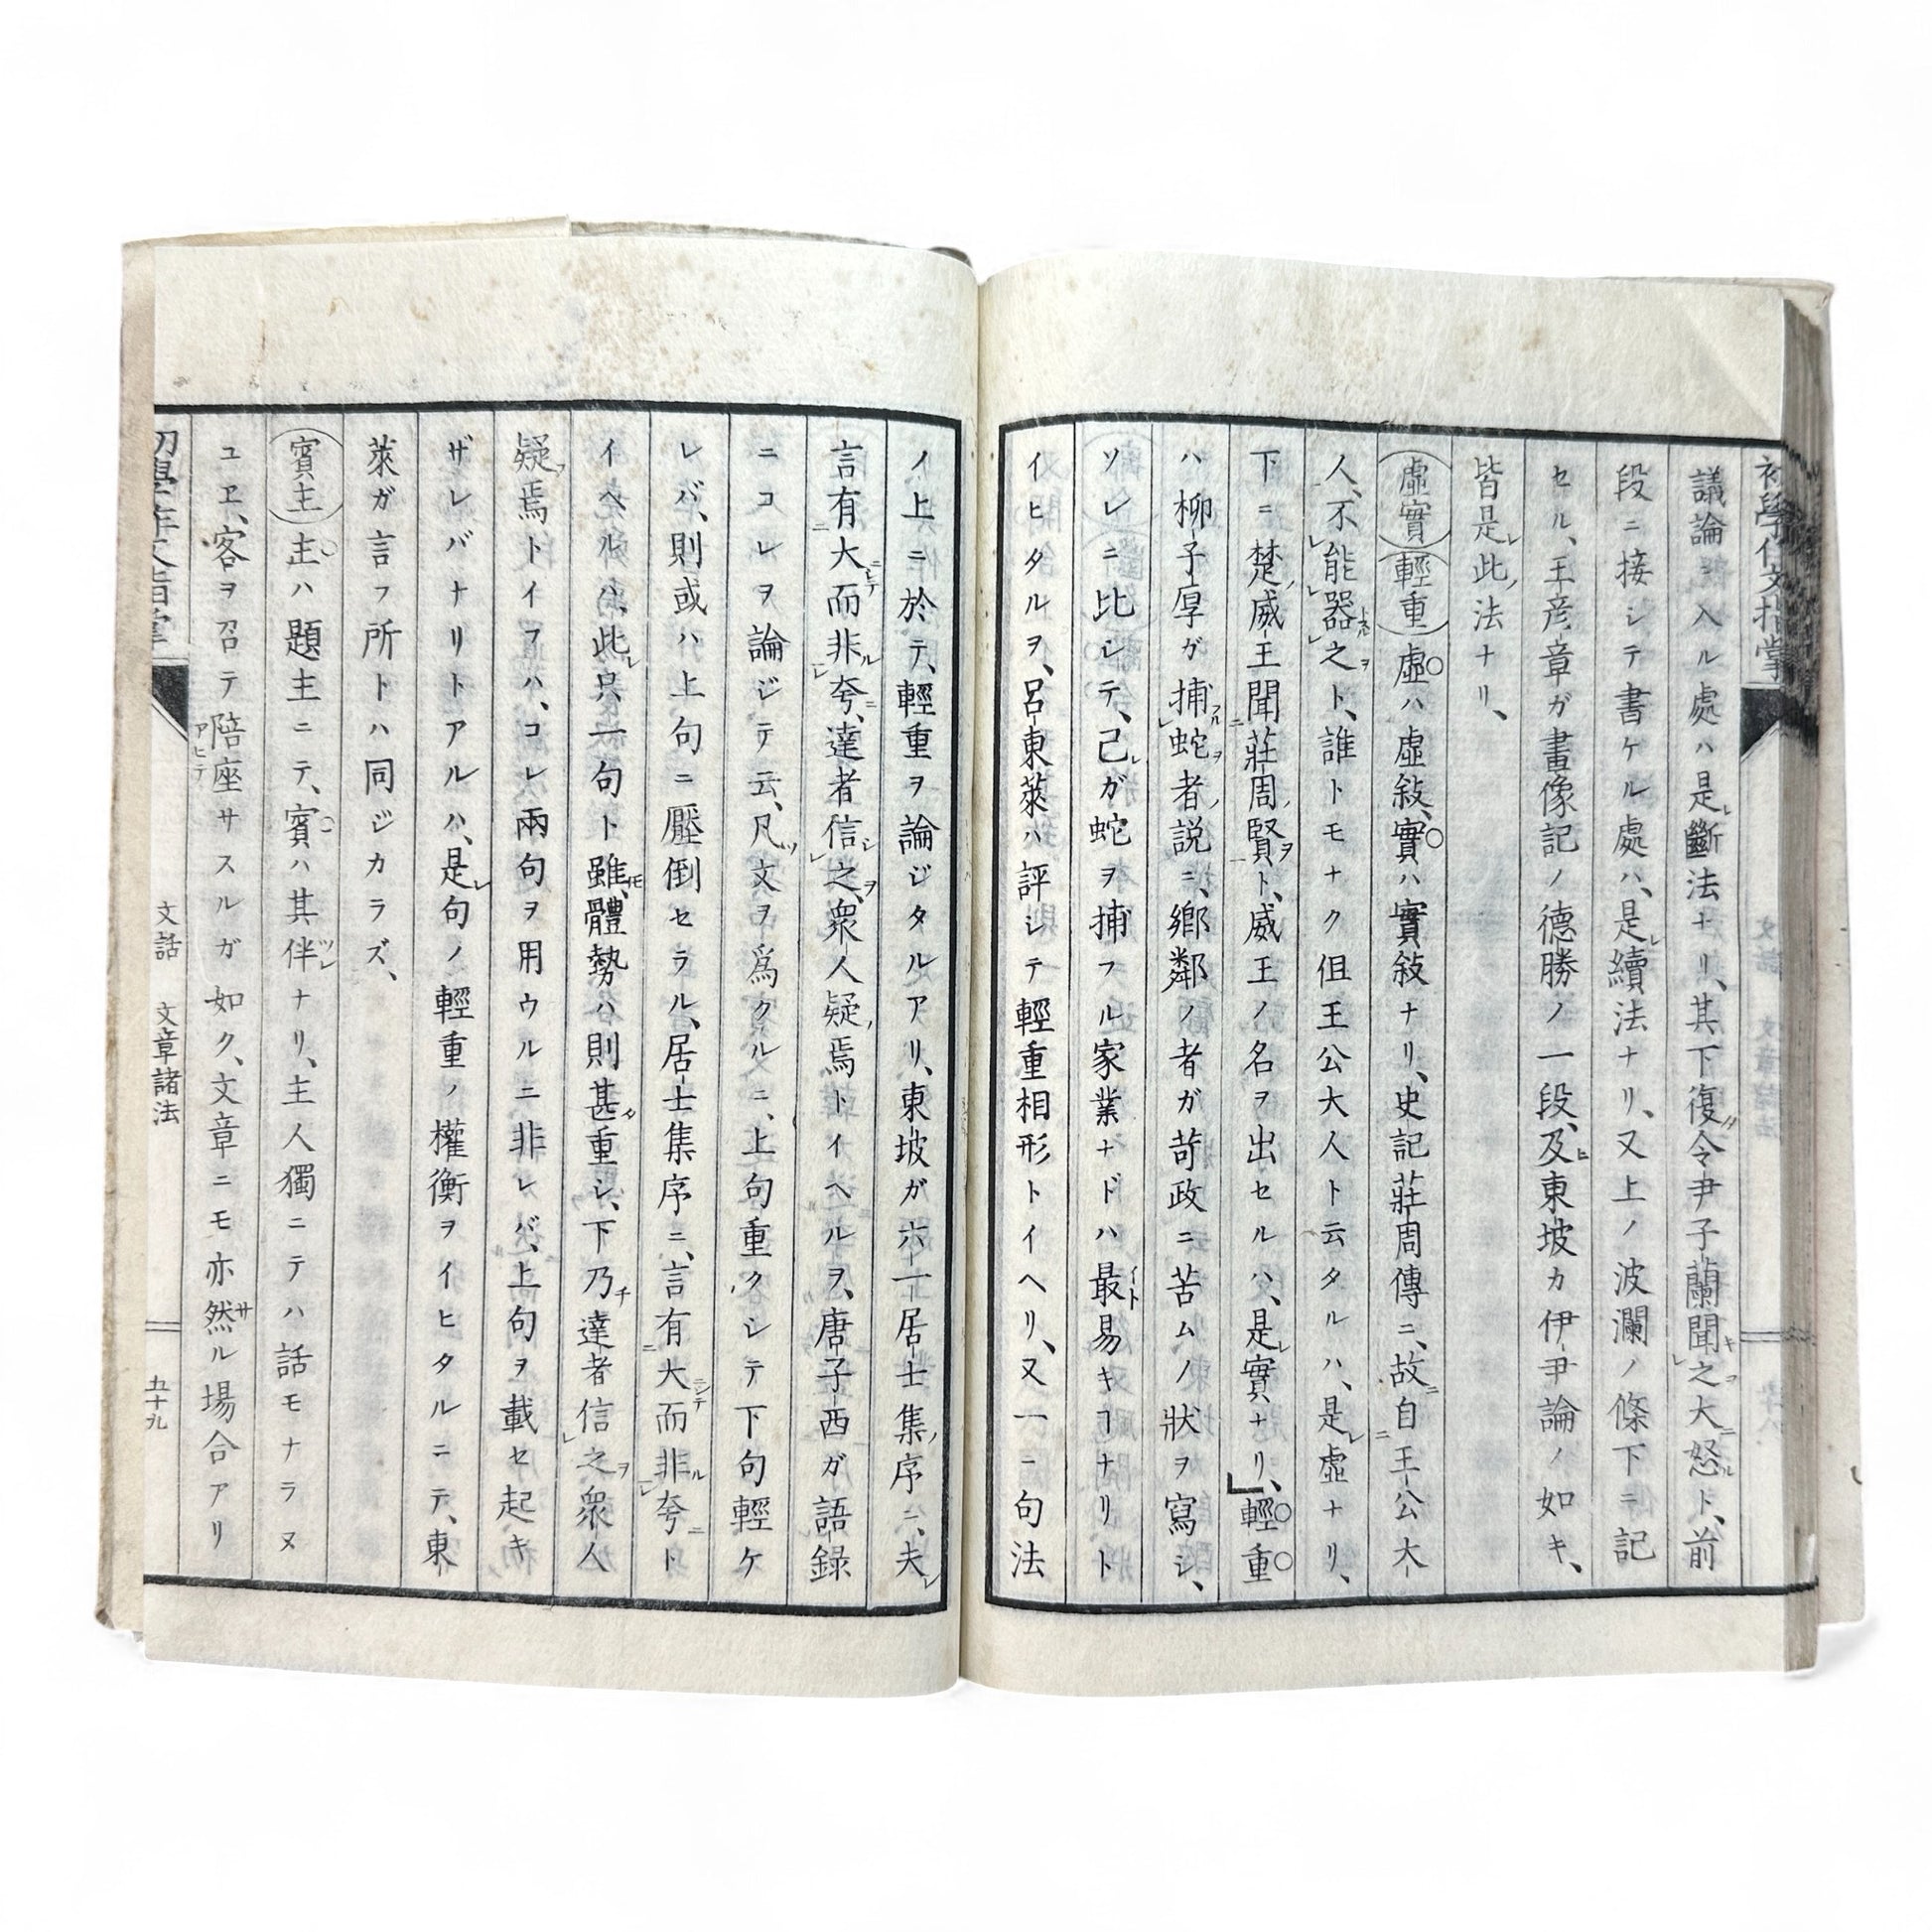 初學作文指掌
議論ヨ入ル處ハ是斷法ナリ、其下復令尹子蘭聞之大怒ト、前
段ニ接シテ書ケル處ハ、是續法ナリ、又上ノ波瀾ノ條下ニ記
セル、王彦章ガ畫像記ノ德勝ノ一段、及東坡カ伊尹論ノ如キ、
皆是此法ナリ、
虛實 輕重 虛ハ虛敍、實ハ實敍ナリ、史記莊周傳ニ、故自王公大
人、不能器之ト、誰トモナク但王公大人ト云タルハ、是虛ナリ、
下ニ楚威王聞莊周賢ト、威王ノ名ヲ出セルハ、是實ナリ、輕重
ハ柳子厚ガ捕蛇者說ニ、鄉鄰ノ者ガ苛政ニ苦ムノ狀ヲ寫シ、
ソレニ比シテ、己ガ蛇ヲ捕フル家業ナドハ最易キヿナリト
イヒタルヲ、呂東萊ハ評シテ輕重相形トイヘリ、又一ニ句法
ノ上ニ於テ、輕重ヲ論ジタルアリ、東坡ガ六一居士集序ニ、夫
言有大而非夸、達者信之、衆人疑焉トイヘルヲ、唐子西ガ語録
ニコレヲ論ジテ云、凡文ヲ爲クルニ、上句重クシテ下句輕ケ
レバ、則或ハ上句ニ壓倒セラル、居士集序ニ、言有大而非夸ト
イヘルハ、此只一句ト雖、體勢ハ則甚重シ、下乃達者信之衆人
疑焉トイフハ、コレ兩句ヲ用ウルニ非レバ、上句ヲ載セ起キ
ザレバナリトアルハ、是句ノ輕重ノ權衡ヲイヒタルニテ、東
萊ガ言フ所トハ同ジカラズ、
賓主 主ハ題主ニテ、賓ハ其伴ナリ、主人獨ニテハ話モナラヌ
ユヱ、客ヲ召テ陪座サスルガ如ク、文章ニモ亦然ル場合アリ
初學作文指掌 文話 文章諸法 五十九